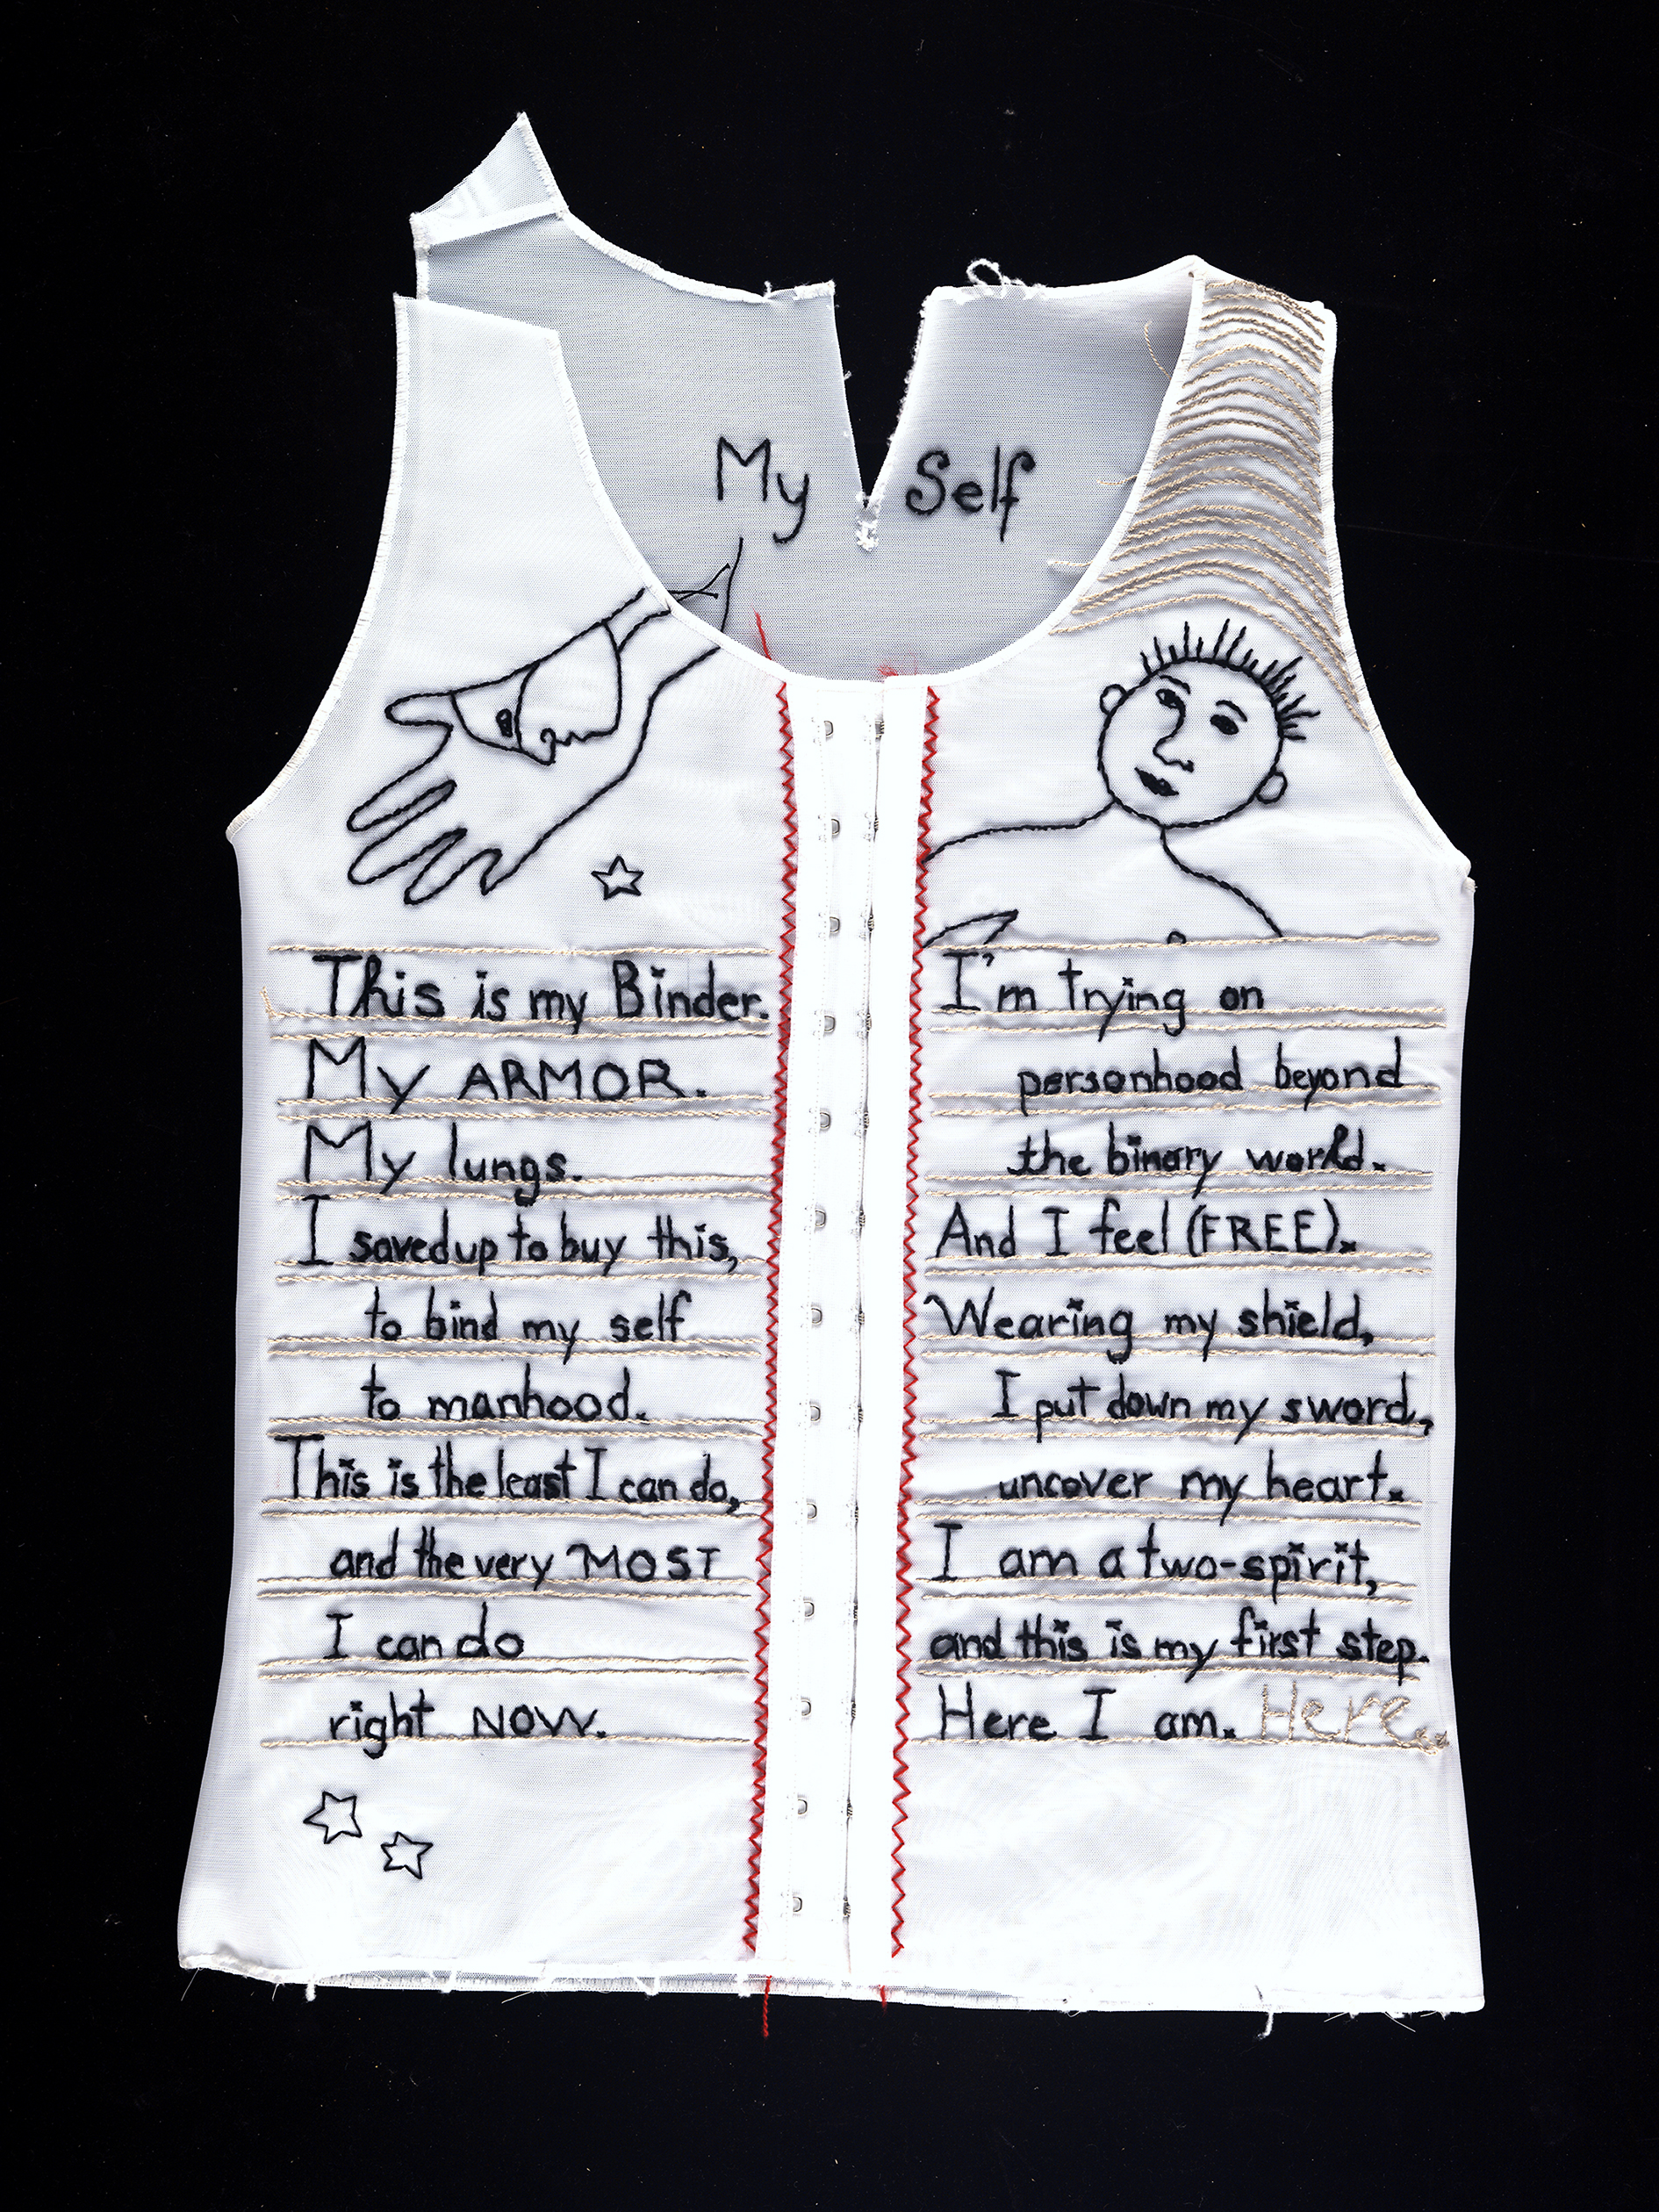 My Self
This is my Binder.
My ARMOR.
My lungs.
I saved up to buy this,
to bind my self
to manhood.
This is the least I can do,
and the very MOST
I can do
right NOW.
I'm trying on
personhood beyond
the binary world.
And I feel (FREE).
Wearing my shield,
I put down my sword,
uncover my heart.
I am a two-spirit,
and this is my first step.
Here I am. Here.